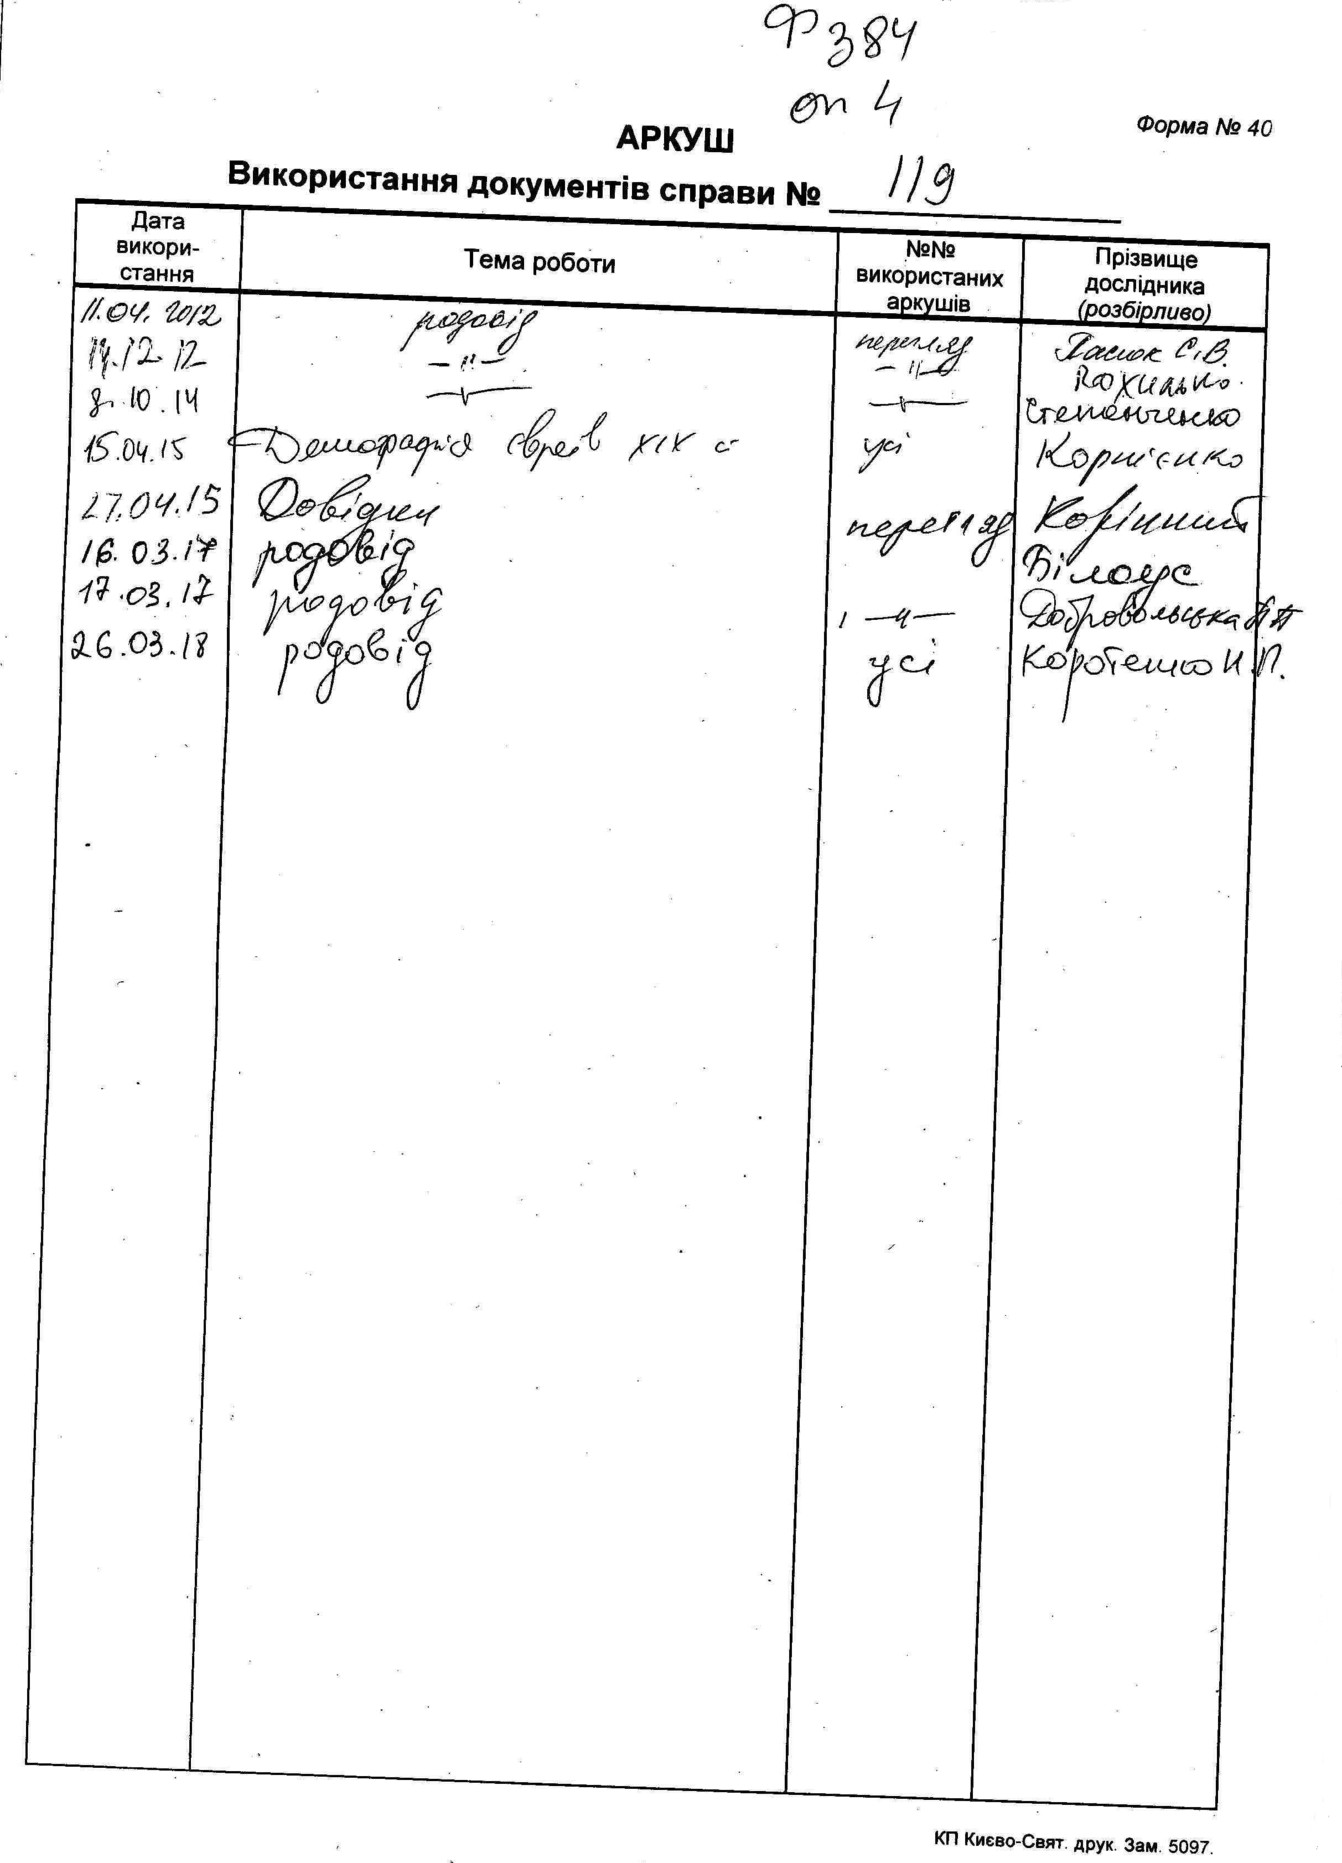 Ф 384
оп 4
Форма № 40
АРКУШ
Використання документів справи № 119
Дата використання
Тема роботи
№№ використаних аркушів
Прізвище дослідника (розбірливо)
11.04.2012 родовід перегляд С.В.
12.12 –"– –"–
10.14
Степанченко
15.04.15 Демографія євреїв XIX ст усі Корнієнко
27.04.15 Довідки перегляд Корінний
16.03.17 родовід Білоус
17.03.17 родовід –"– Добровольська
26.03.18 родовід усі Коротенко И.П.
КП Києво-Свят. друк. Зам. 5097.